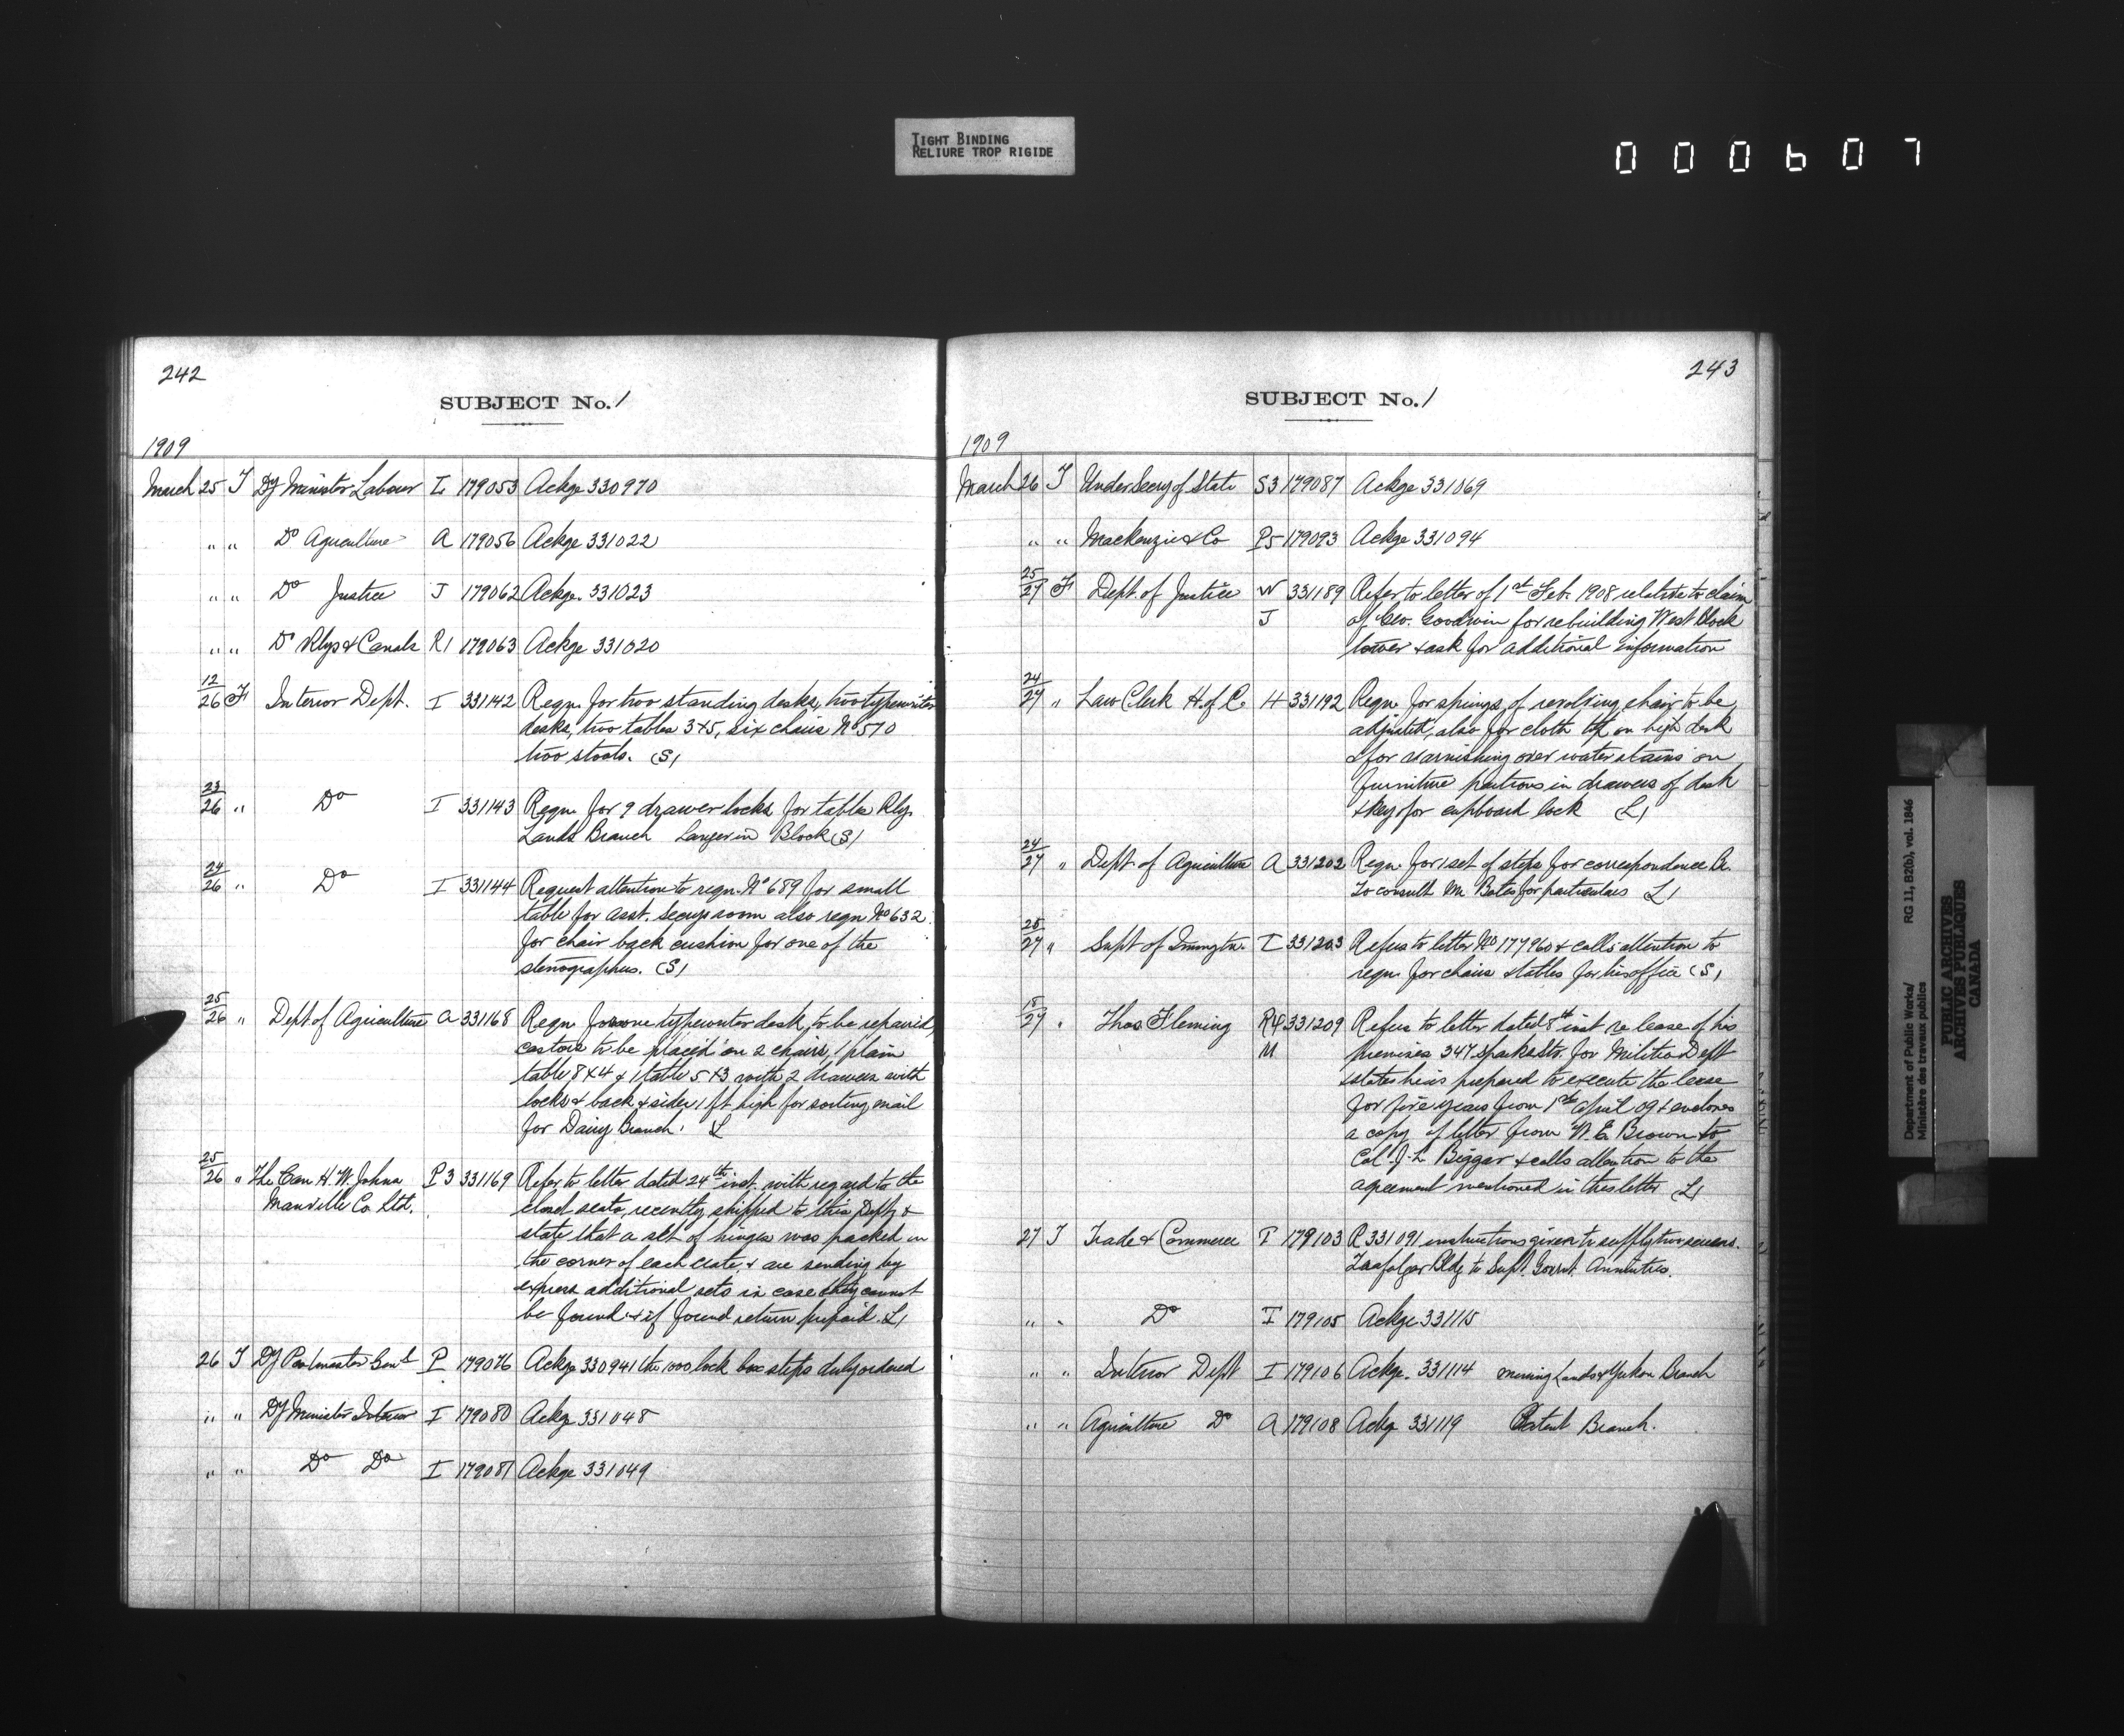 TIGHT BINDING
RELIURE TROP RIGIDE
000607
242
SUBJECT No. 1
1909
March 25 T Dy Minister Labour L 179053 Ackge 330970
" " Do Agriculture A 179056 Ackge 331022
" " Do Justice J 179062 Ackge. 331023
" " Do Rlys & Canals R1 179063 Ackge 331020
12/26 F Interior Dept. I 331142 Reqn. for two standing desks, two typewriter
desks, two tables 3x5, six chairs No 570
two stools. (S)
23/26 " Do I 331143 Reqn. for 9 drawer locks for tables Rly.
Lands Branch Langevin Block (S)
24/26 " Do I 331144 Request attention to reqn. No 689 for small
table for asst. Secys room also reqn No 632
for chair back cushion for one of the
stenographers. (S)
25/26 " Dept of Agriculture A 331168 Reqn. for one typewriter desk, to be repaired,
castors to be placed on 2 chairs, 1 plain
table 8x4 & 1 table 5x3 with 2 drawers with
locks & back & sides 1 ft high for sorting mail
for Dairy Branch. L
25/26 " The Can H. W. Johns P3 331169 Refer to letter dated 24th inst. with regard to the
Manville Co. Ltd. closet seats, recently shipped to this Dept. &
state that a set of hinges was packed in
the corner of each crate, & are sending by
express additional sets in case they cannot
be found & if found return prepaid. L)
26 T Dy Postmaster Genl P 179076 Ackge 330941 the 1000 lock box steps duly ordered
" " Dy Minister Interior I 179080 Ackge 331048
" " Do Do I 179081 Ackge 331049
243
SUBJECT No. 1
1909
March 26 T Under Secy of State S3 179087 Ackge 331069
" " Mackenzie & Co P5 179093 Ackge 331094
25/27 F Dept. of Justice W 331189 Refer to letter of 1st Feb. 1908 relative to claim
J of Geo. Goodwin for rebuilding West Block
tower & ask for additional information
24/27 " Law Clerk H. of C. H 331192 Reqn. for springs of revolving chair to be
adjusted, also for cloth top on high desk
& for varnishing over water stains on
furniture partions in drawers of desk
& key for cupboard lock (L)
24/27 " Dept. of Agriculture A 331202 Reqn. for 1 set of steps for correspondence Br.
to consult Mr. Bates for particulars L)
25/27 " Supt of Immgtn. I 331203 Refers to letter No 177960 & calls attention to
reqn. for chairs & tables for his office (S)
18/27 " Thos Fleming R4 331209 Refers to letter dated 8th inst re lease of his
M premises 347 Sparks Str. for Militia Dept
& states he is prepared to execute the lease
for five years from 1st April 09 & encloses
a copy of letter from W. E. Brown to
Col. J. L. Biggar & calls attention to the
agreement mentioned in this letter L)
27 T Trade & Commerce T 179103 R 331091 instructions given to supply two screens.
Trafalgar Bldg to Supt. Govrnt. Annuities.
" " Do T 179105 Ackge 331115
" " Interior Dept I 179106 Ackge. 331114 Mining Lands & Yukon Branch
" " Agriculture Do A 179108 Ackge 331119 Patent Branch.
Department of Public Works/ RG 11, B2(b), vol. 1846
Ministère des travaux publics
PUBLIC ARCHIVES
ARCHIVES PUBLIQUES
CANADA